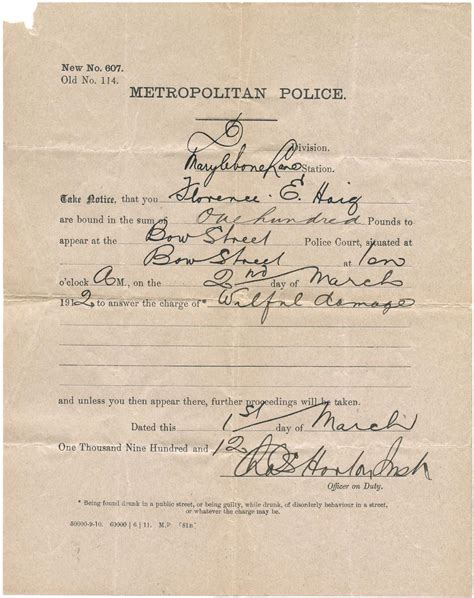 New No. 607.
Old No. 114.
METROPOLITAN POLICE.
D Division.
Marylebone Lane Station.
Take Notice, that you Florence E. Haig
are bound in the sum of One hundred Pounds to
appear at the Bow Street Police Court, situated at
Bow Street at ten
o'clock A M., on the 2nd day of March
1912 to answer the charge of* Wilful damage
and unless you then appear there, further proceedings will be taken.
Dated this 1st day of March
One Thousand Nine Hundred and 12
Insp
Officer on Duty.
* Being found drunk in a public street, or being guilty, while drunk, of disorderly behaviour in a street,
or whatever the charge may be.
50000-9-10. 60000 | 6 | 11. M.P